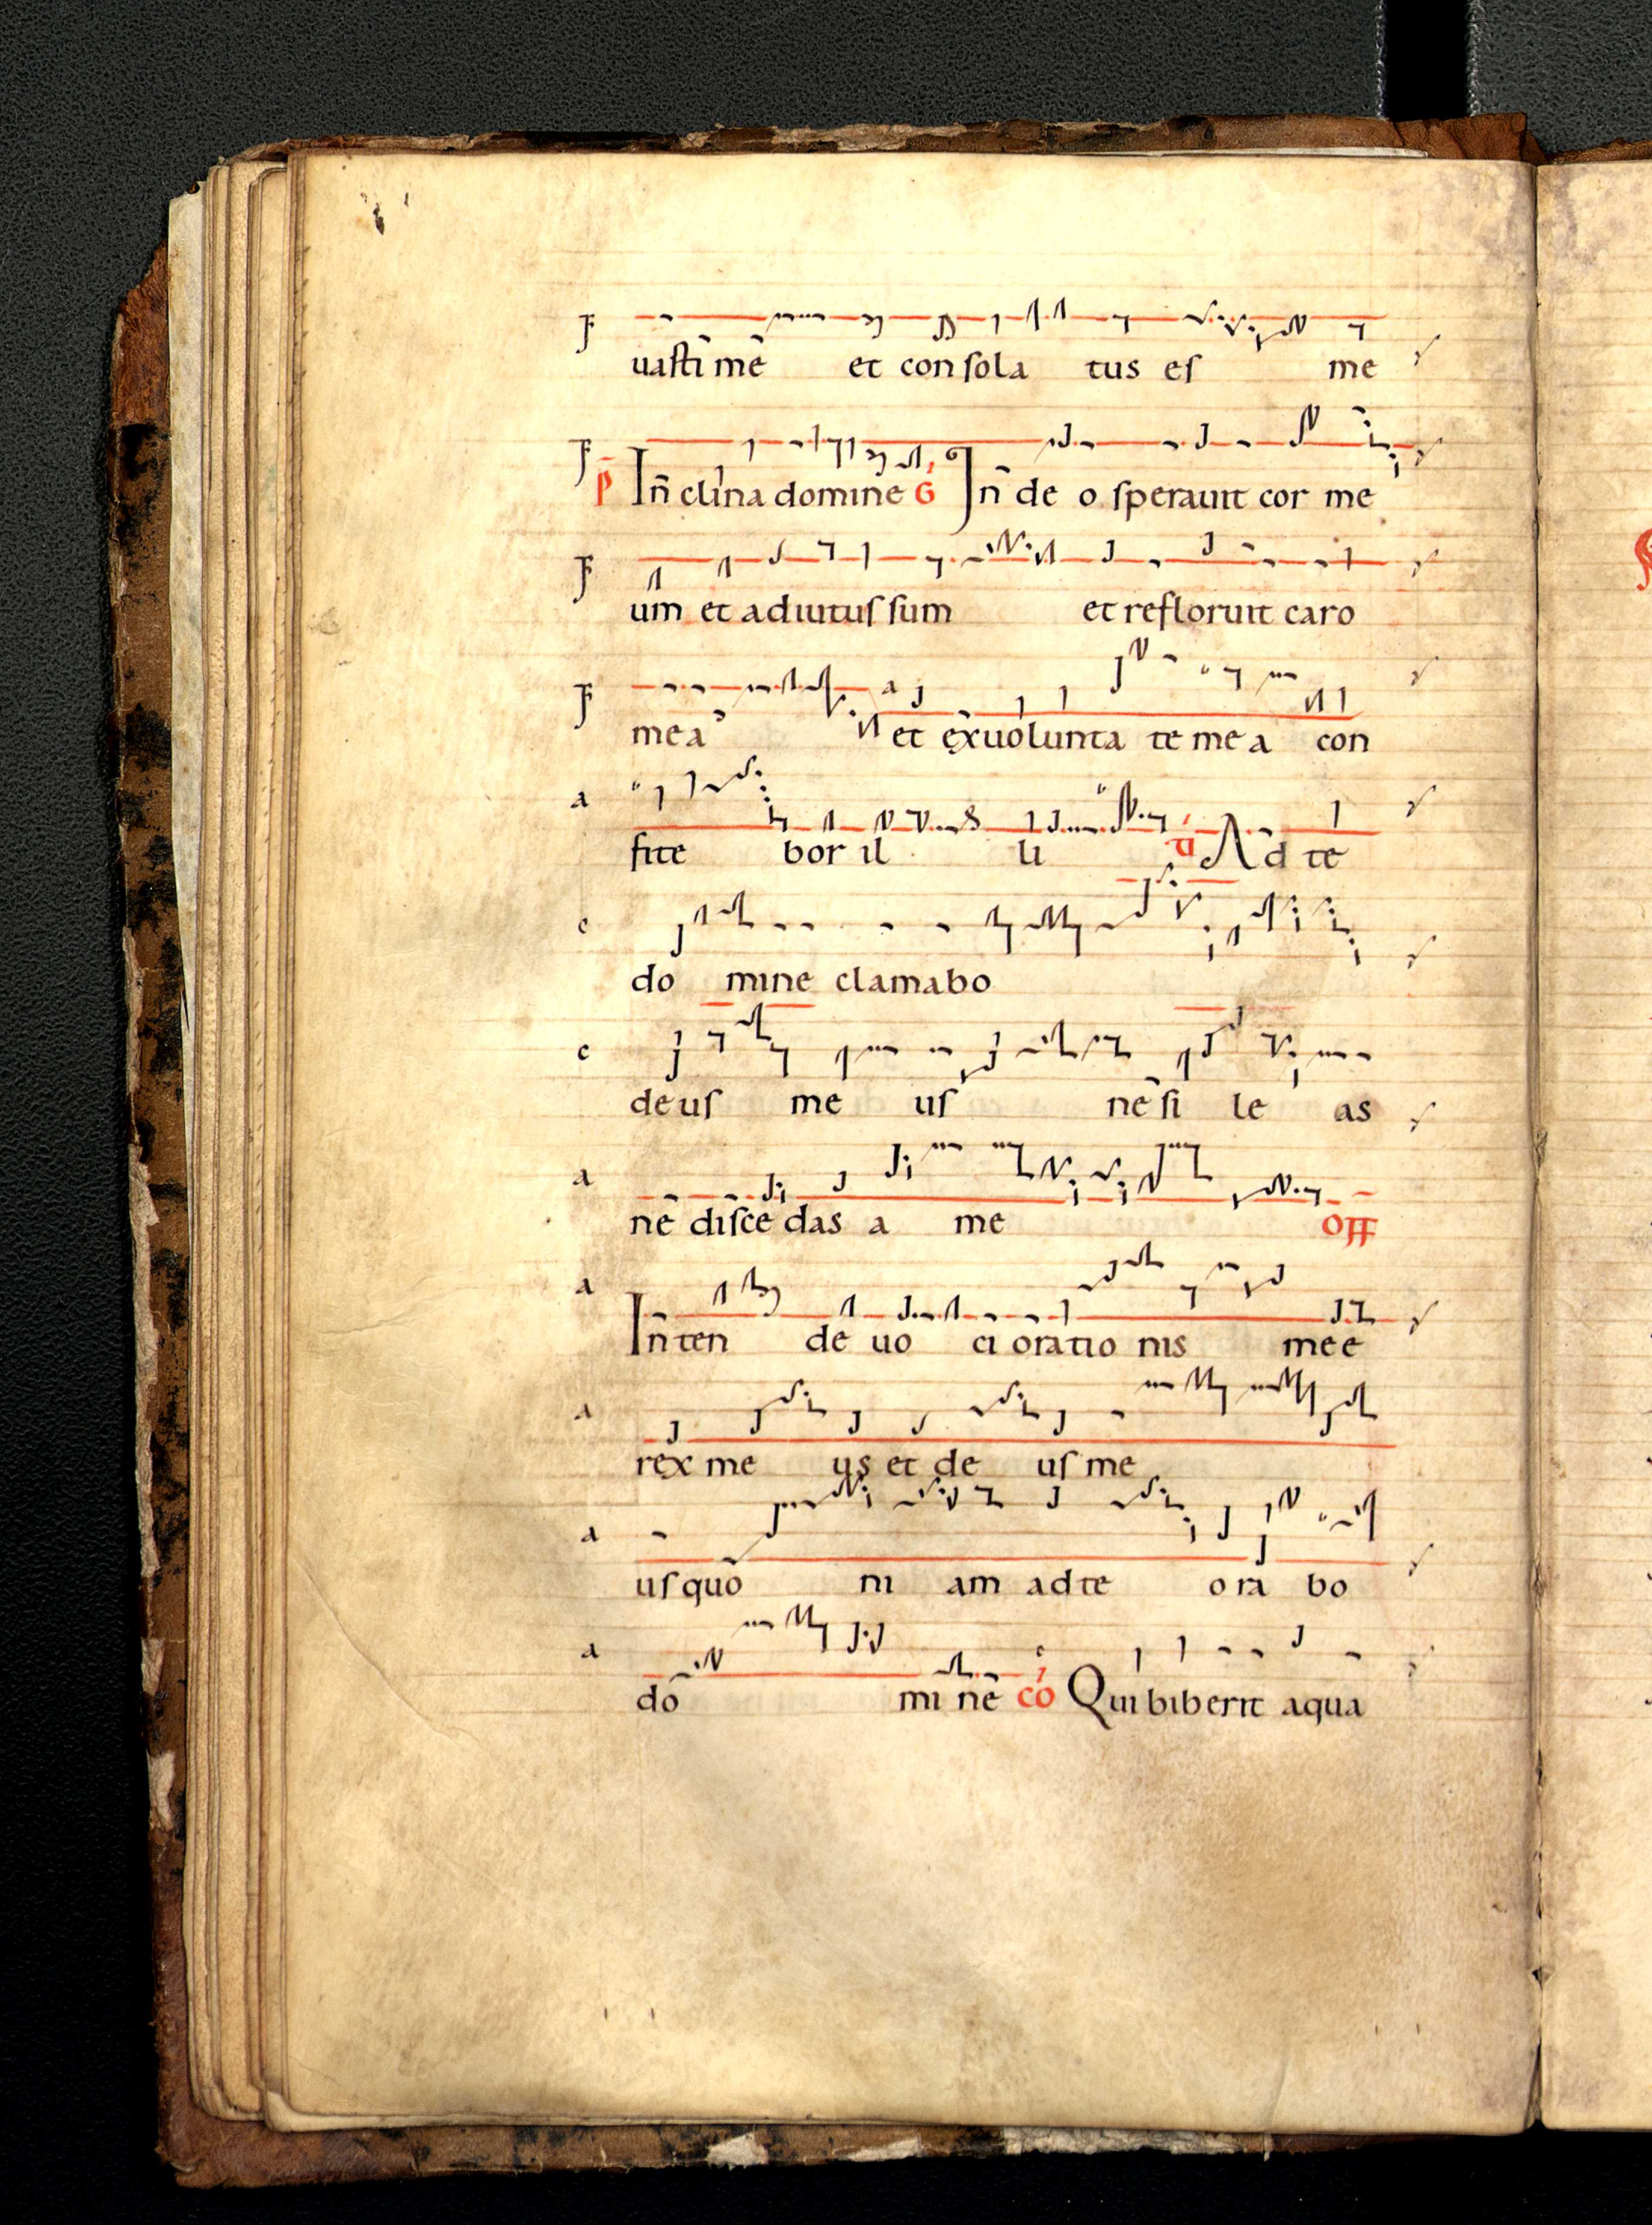 uaſti mē et con ſola tus eſ me
P Iñ clina domine G Iñ de o ſperauit cor me
um et adiutuſ ſum et refloruit caro
mea et ex uolunta te me a con
fite bor il li ū Ad te
do mine clamabo
deuſ me uſ ne ſi le as
ne diſce das a me off
Inten de uo ci oratio nis mee
rex me us et de uſ me
uſ quo ni am ad te ora bo
do mi ne có Qui biberit aqua